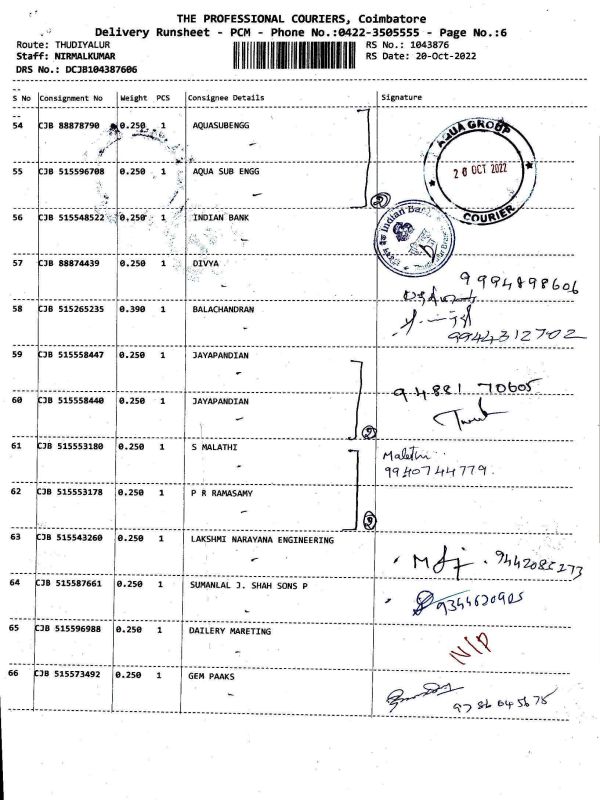 THE PROFESSIONAL COURIERS, Coimbatore
Delivery Runsheet - PCM - Phone No.:0422-3505555 - Page No.:6
Route: THUDIYALUR RS No.: 1043876
Staff: NIRMALKUMAR RS Date: 20-Oct-2022
DRS No.: DCJB104387606
S No Consignment No Weight PCS Consignee Details Signature
54 CJB 88878790 0.250 1 AQUASUBENGG
AQUA GROUP
20 OCT 2022
COURIER
55 CJB 515596708 0.250 1 AQUA SUB ENGG
2
56 CJB 515548522 0.250 1 INDIAN BANK
Indian Bank
57 CJB 88874439 0.250 1 DIVYA
9994898606
58 CJB 515265235 0.390 1 BALACHANDRAN
9944312702
59 CJB 515558447 0.250 1 JAYAPANDIAN
94881 70605
60 CJB 515558440 0.250 1 JAYAPANDIAN
2
61 CJB 515553180 0.250 1 S MALATHI
Malathi
9940744779
62 CJB 515553178 0.250 1 P R RAMASAMY
2
63 CJB 515543260 0.250 1 LAKSHMI NARAYANA ENGINEERING
9442085273
64 CJB 515587661 0.250 1 SUMANLAL J. SHAH SONS P
9344620905
65 CJB 515596988 0.250 1 DAILERY MARETING
N/P
66 CJB 515573492 0.250 1 GEM PAAKS
9786045675